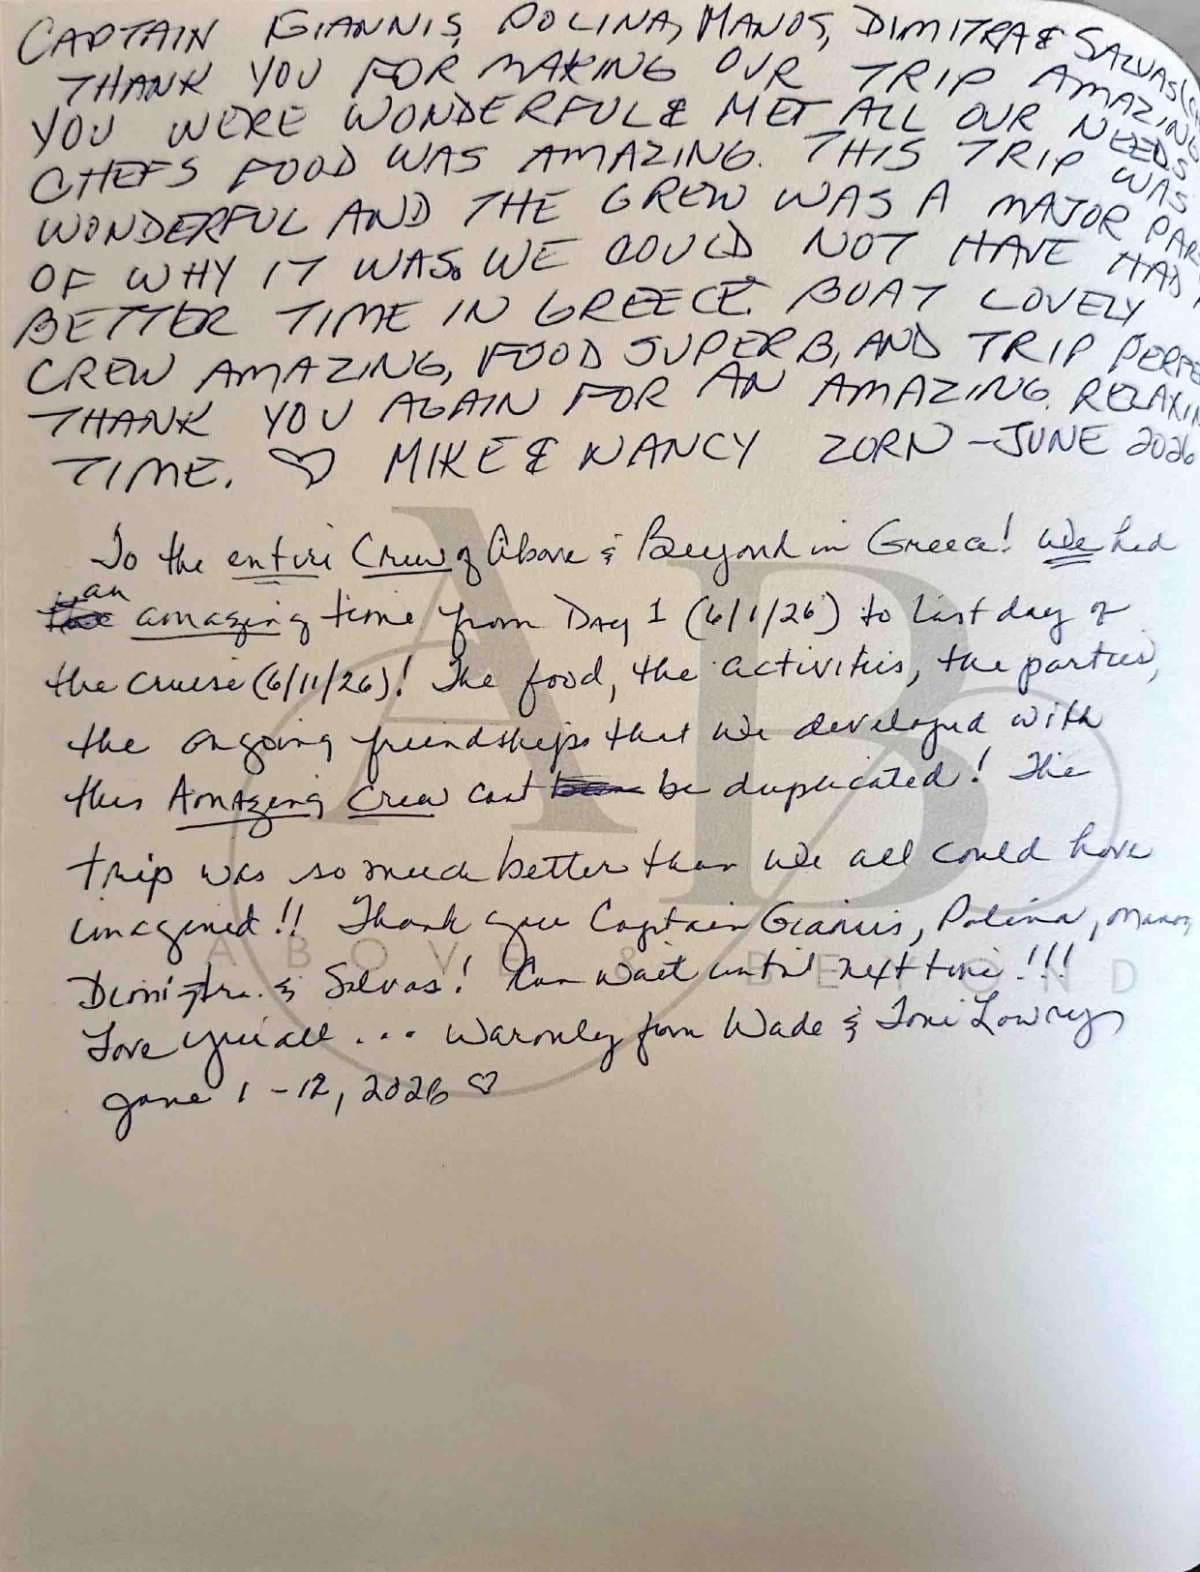 CAPTAIN GIANNIS, POLINA, MANOS, DIMITRA & SALVAS
THANK YOU FOR MAKING OUR TRIP AMAZING
YOU WERE WONDERFUL & MET ALL OUR NEEDS
CHEFS FOOD WAS AMAZING. THIS TRIP WAS
WONDERFUL AND THE CREW WAS A MAJOR PAR
OF WHY IT WAS. WE COULD NOT HAVE HAD
BETTER TIME IN GREECE. BOAT LOVELY
CREW AMAZING, FOOD SUPERB, AND TRIP PERFE
THANK YOU AGAIN FOR AN AMAZING. RELAXIN
TIME. ♡ MIKE & NANCY ZORN - JUNE 2026
To the entire Crew of Above & Beyond in Greece! We had
an amazing time from Day 1 (6/1/26) to last day of
the cruise (6/11/26)! The food, the activities, the parties,
the ongoing friendships that we developed with
this Amazing Crew cant be duplicated! The
trip was so much better than we all could have
imagined!! Thank you Captain Giannis, Polina, Manos,
Dimitra & Salvas! Can wait until next time!!!
Love you all ... Warmly from Wade & Toni Lowrey
June 1 - 12, 2026 ♡
AB
ABOVE & BEYOND